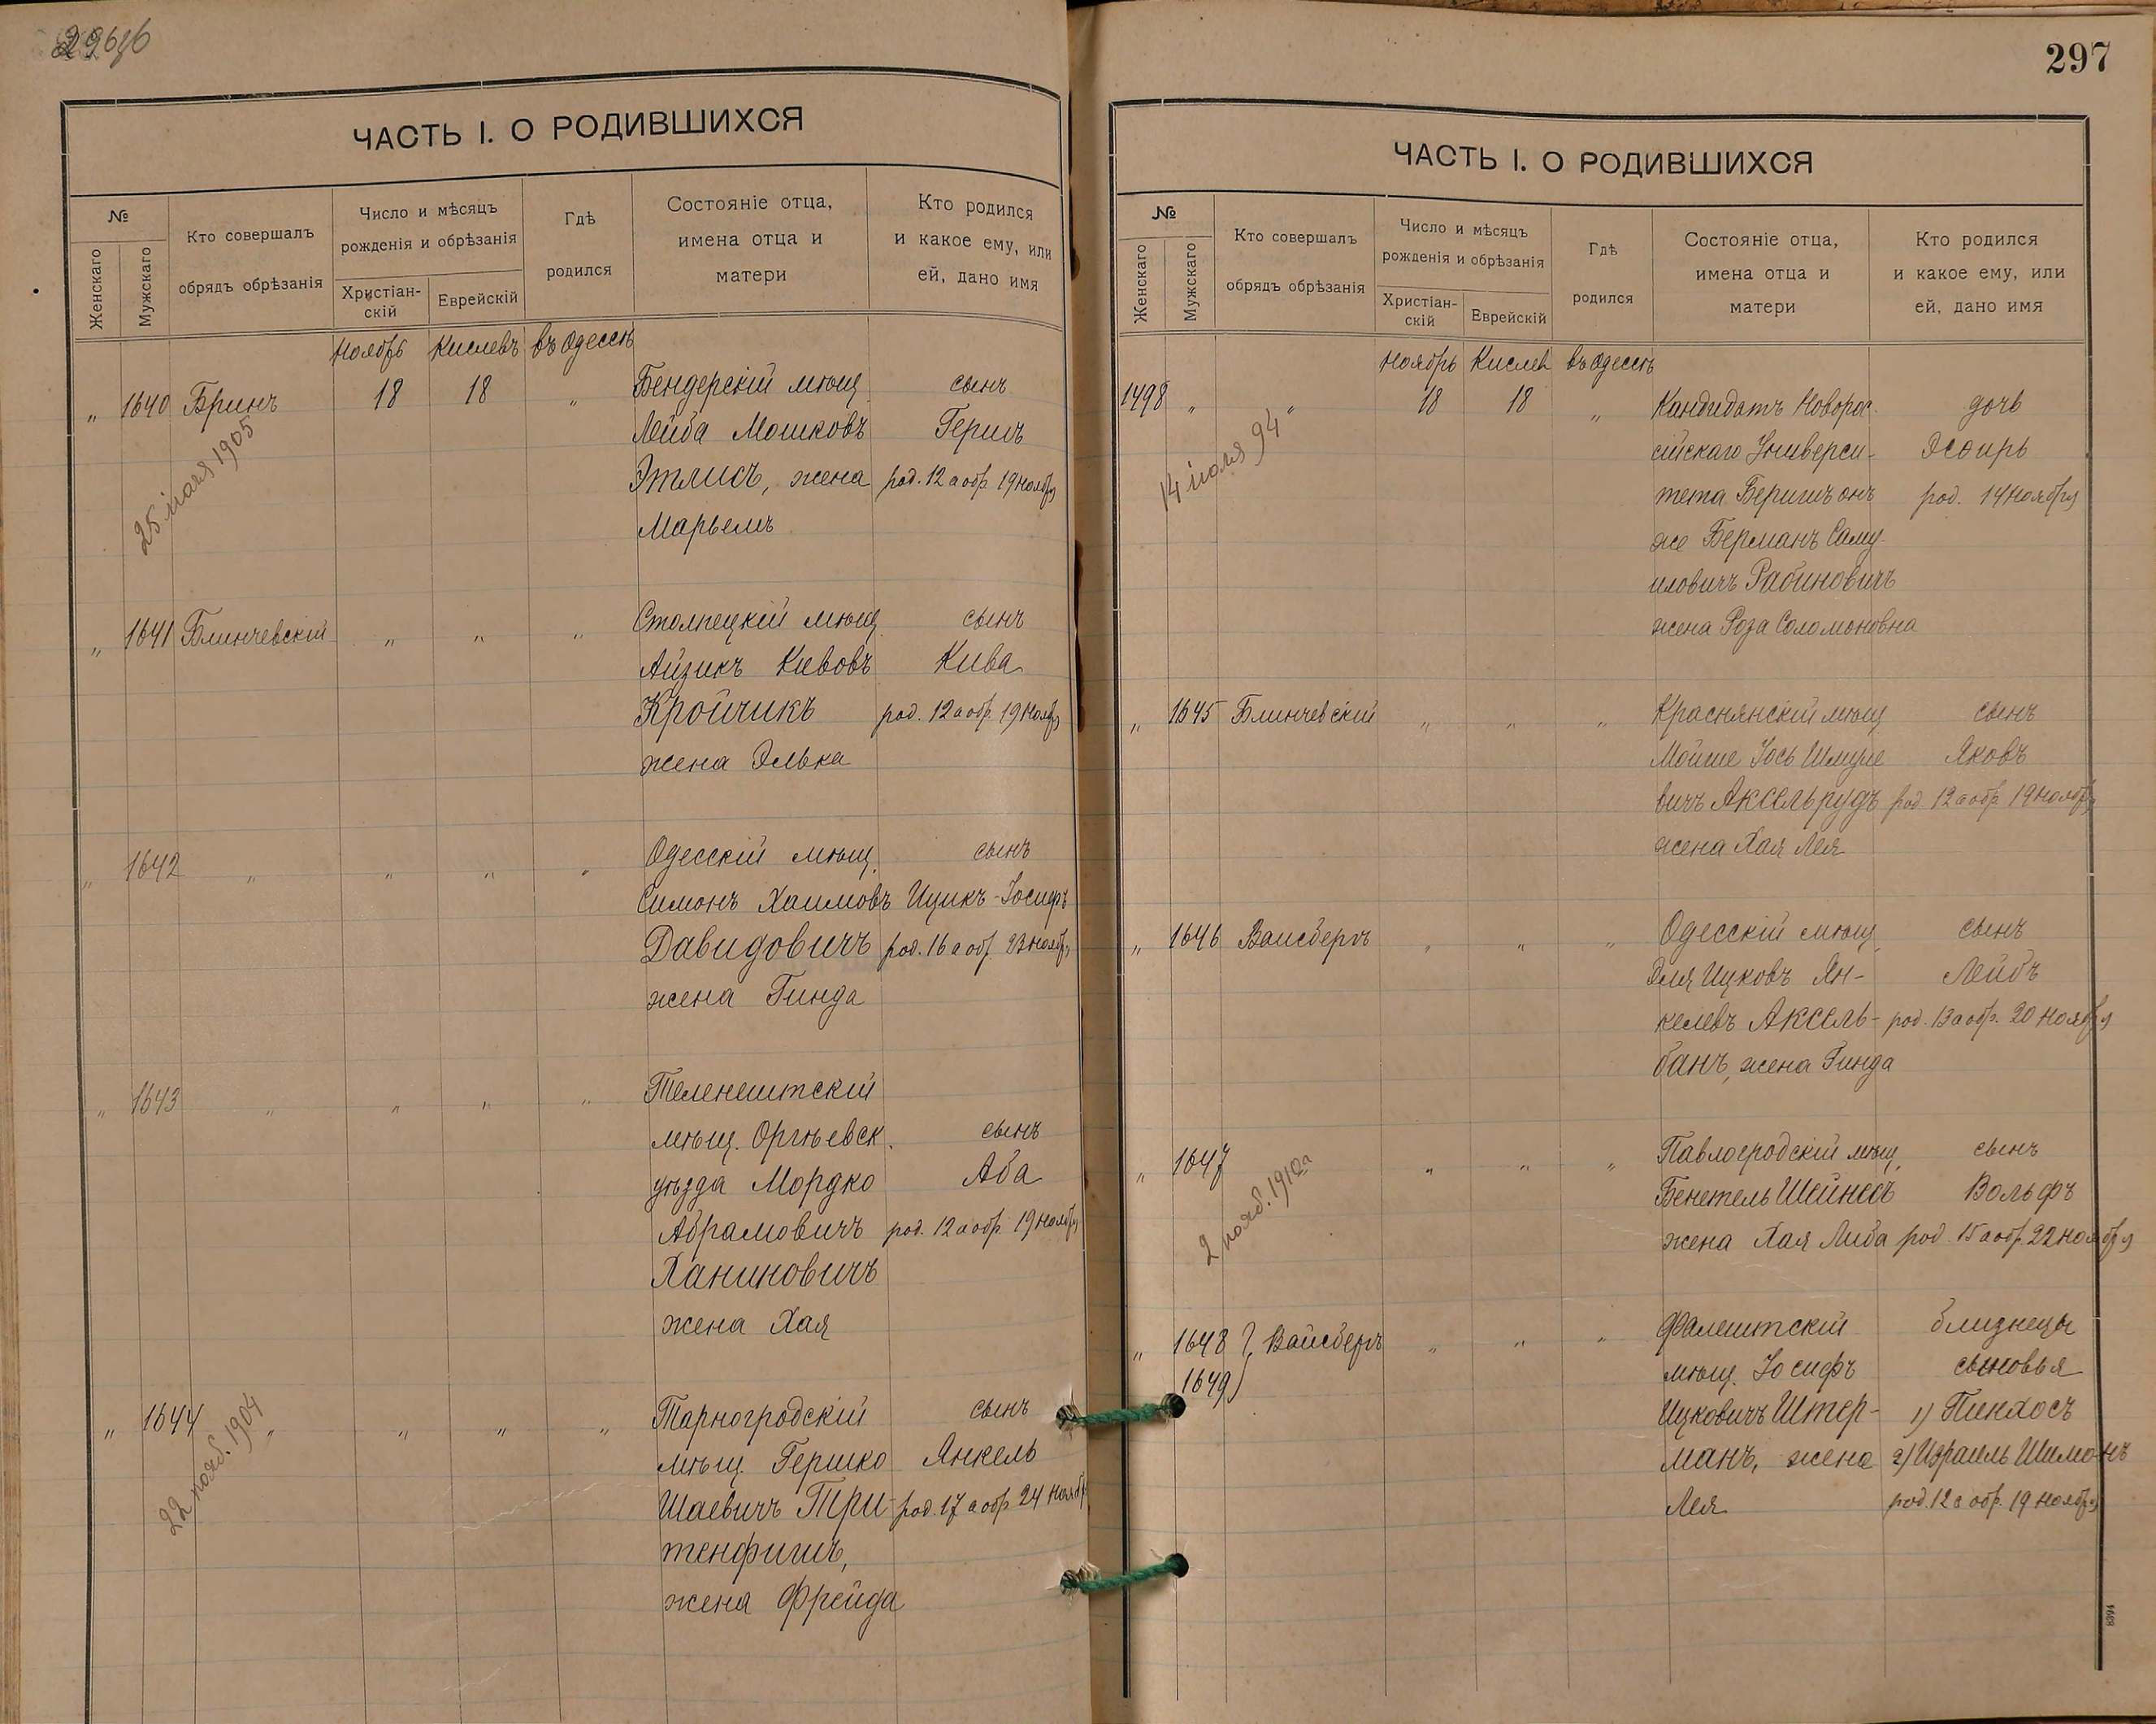 ЧАСТЬ I. О РОДИВШИХСЯ
№
Женскаго
Мужскаго
Кто совершалъ
обрядъ обрѣзанія
Число и мѣсяцъ
рожденія и обрѣзанія
Христіан-
скій
Еврейскій
Гдѣ
родился
Состояніе отца,
имена отца и
матери
Кто родился
и какое ему, или
ей, дано имя
Ноябрь Кислевъ въ Одессѣ
„ 1640 Бринъ 18 18 „ Бендерскій мѣщ. сынъ
Лейба Мошковъ Гершъ
Этлисъ, жена род. 12 а обр. 19 ноября
Марьемъ
25 мая 1905
„ 1641 Блинчевскій „ „ „ Столпецкій мѣщ. сынъ
Айзикъ Кивовъ Кива
Кройчикъ род. 12 а обр. 19 ноября
жена Элька
„ 1642 „ „ „ „ Одесскій мѣщ. сынъ
Симонъ Хаимовъ Ицикъ-Іосифъ
Давидовичъ род. 16 а обр. 23 ноября
жена Гинда
„ 1643 „ „ „ „ Теленештскій
мѣщ. Оргѣевск. сынъ
уѣзда Мордко Аба
Абрамовичъ род. 12 а обр. 19 ноября
Ханиновичъ
жена Хая
„ 1644 „ „ „ „ Тарногродскій сынъ
мѣщ. Гершко Янкель
Шаевичъ Три- род. 17 а обр. 24 ноября
тенфишъ,
жена Фрейда
22 нояб. 1904
297
ЧАСТЬ I. О РОДИВШИХСЯ
№
Женскаго
Мужскаго
Кто совершалъ
обрядъ обрѣзанія
Число и мѣсяцъ
рожденія и обрѣзанія
Христіан-
скій
Еврейскій
Гдѣ
родился
Состояніе отца,
имена отца и
матери
Кто родился
и какое ему, или
ей, дано имя
Ноябрь Кислев въ Одессѣ
1498 „ „ 18 18 „ Кандидатъ Новорос- дочь
сійскаго Универси- Эсѳирь
тета Беришъ онъ род. 14 ноября
же Берманъ Саму-
иловичъ Рабиновичъ
жена Роза Соломоновна
14 іюля 94
„ 1645 Блинчевскій „ „ „ Краснянскій мѣщ. сынъ
Мойше Іось Шмуле Яковъ
вичъ Аксельрудъ род. 12 а обр. 19 ноября
жена Хая Лея
„ 1646 Вайсбергъ „ „ „ Одесскій мѣщ. сынъ
Эля Ицковъ Ян- Лейбъ
келевъ Аксель- род. 13 а обр. 20 ноября
банъ, жена Гинда
„ 1647 „ „ „ Павлоградскій мѣщ. сынъ
Бенетель Шейнесъ Вольфъ
жена Хая Либа род. 15 а обр. 22 ноября
2 нояб. 1910 г.
„ 1648 Вайсбергъ „ „ „ Фалештскій близнецы
1649 мѣщ. Іосифъ сыновья
Ицковичъ Штер- 1) Пинхосъ
манъ, жена 2) Израиль Шимонъ
Лея род. 12 а обр. 19 ноября
8394